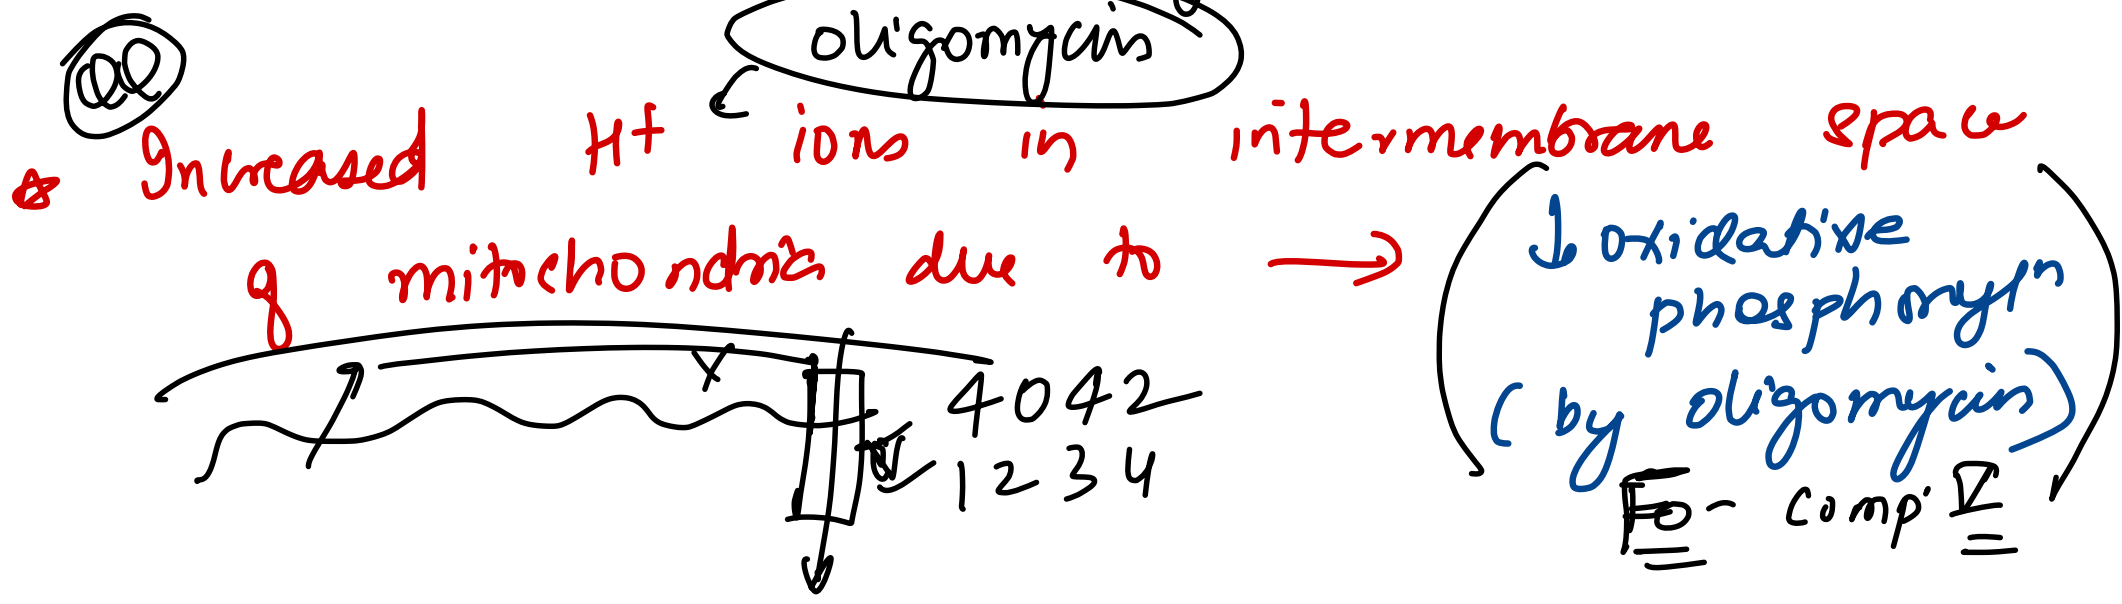 oligomycin
Increased H+ ions in intermembrane space
of mitochondria due to → ↓ oxidative
phosphorylⁿ
(by oligomycin)
4042
1234
Fo - comp V